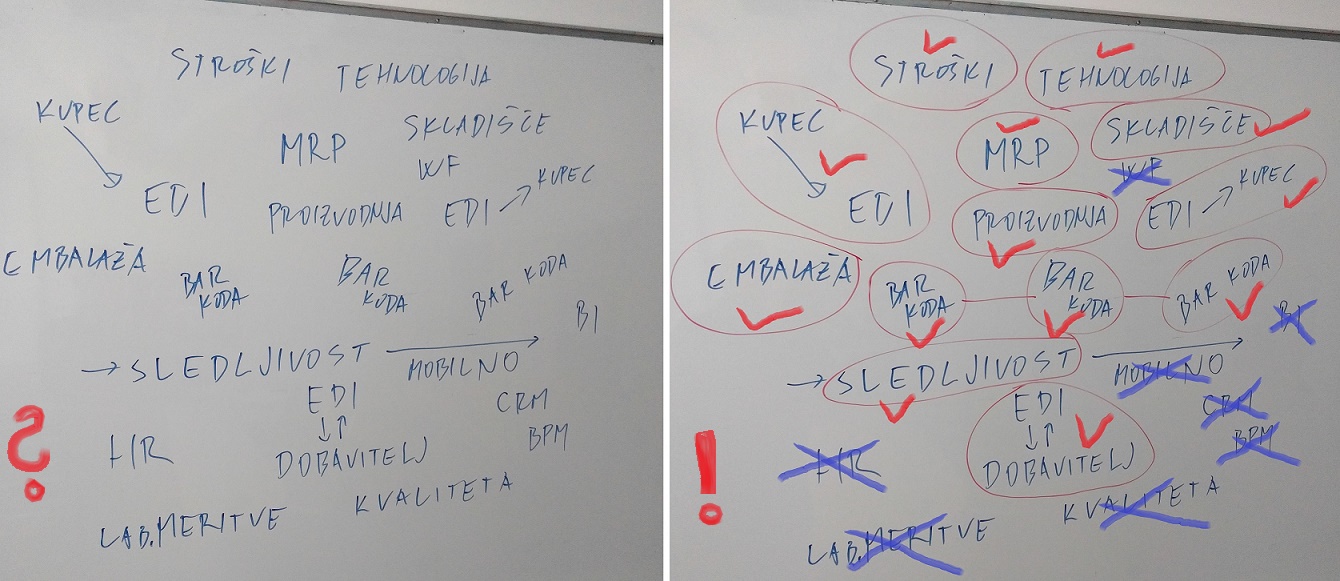 STROŠKI
TEHNOLOGIJA
KUPEC
SKLADIŠČE
MRP
WF
KUPEC
EDI
PROIZVODNJA
EDI
EMBALAŽA
BAR
KODA
BAR
KODA
BAR KODA
BI
SLEDLJIVOST
MOBILNO
EDI
CRM
HR
DOBAVITELJ
BPM
LAB. MERITVE
KVALITETA
?
STROŠKI
TEHNOLOGIJA
KUPEC
SKLADIŠČE
MRP
WF
KUPEC
EDI
PROIZVODNJA
EDI
EMBALAŽA
BAR
KODA
BAR
KODA
BAR KODA
BI
SLEDLJIVOST
MOBILNO
EDI
CRM
HR
DOBAVITELJ
BPM
LAB. MERITVE
KVALITETA
!